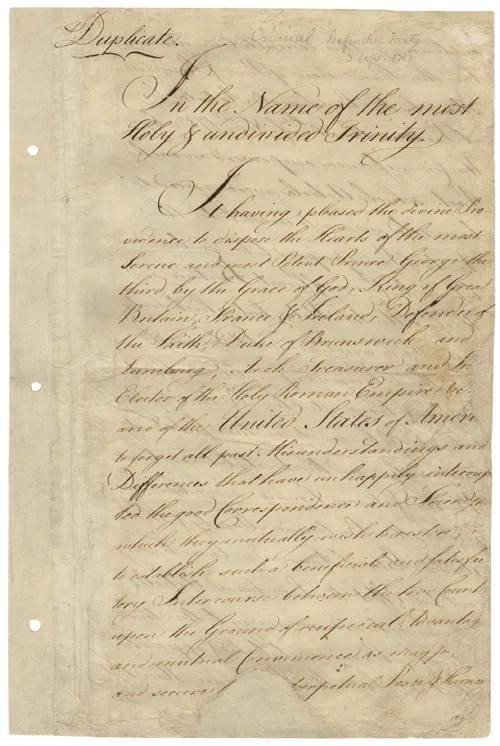 Duplicate.
Original Definitive Treaty
3 Sept. 1783
In the Name of the most
Holy & undivided Trinity.
It having pleased the divine Pro
vidence to dispose the Hearts of the most
Serene and most Potent Prince George the
third, by the Grace of God, King of Great
Britain, France & Ireland, Defender of
the Faith, Duke of Brunswick and
Lunebourg, Arch Treasurer and
Elector of the Holy Roman Empire &c.
and of the United States of Ameri
to forget all past Misunderstandings and
Differences that have unhappily interrup
ted the good Correspondence and
which they mutually wish to restore;
to establish such a beneficial and satisfac
tory Intercourse between the two Count
upon the Ground of reciprocal Advantag
and mutual Convenience as may
and secure perpetual Peace & Harmon